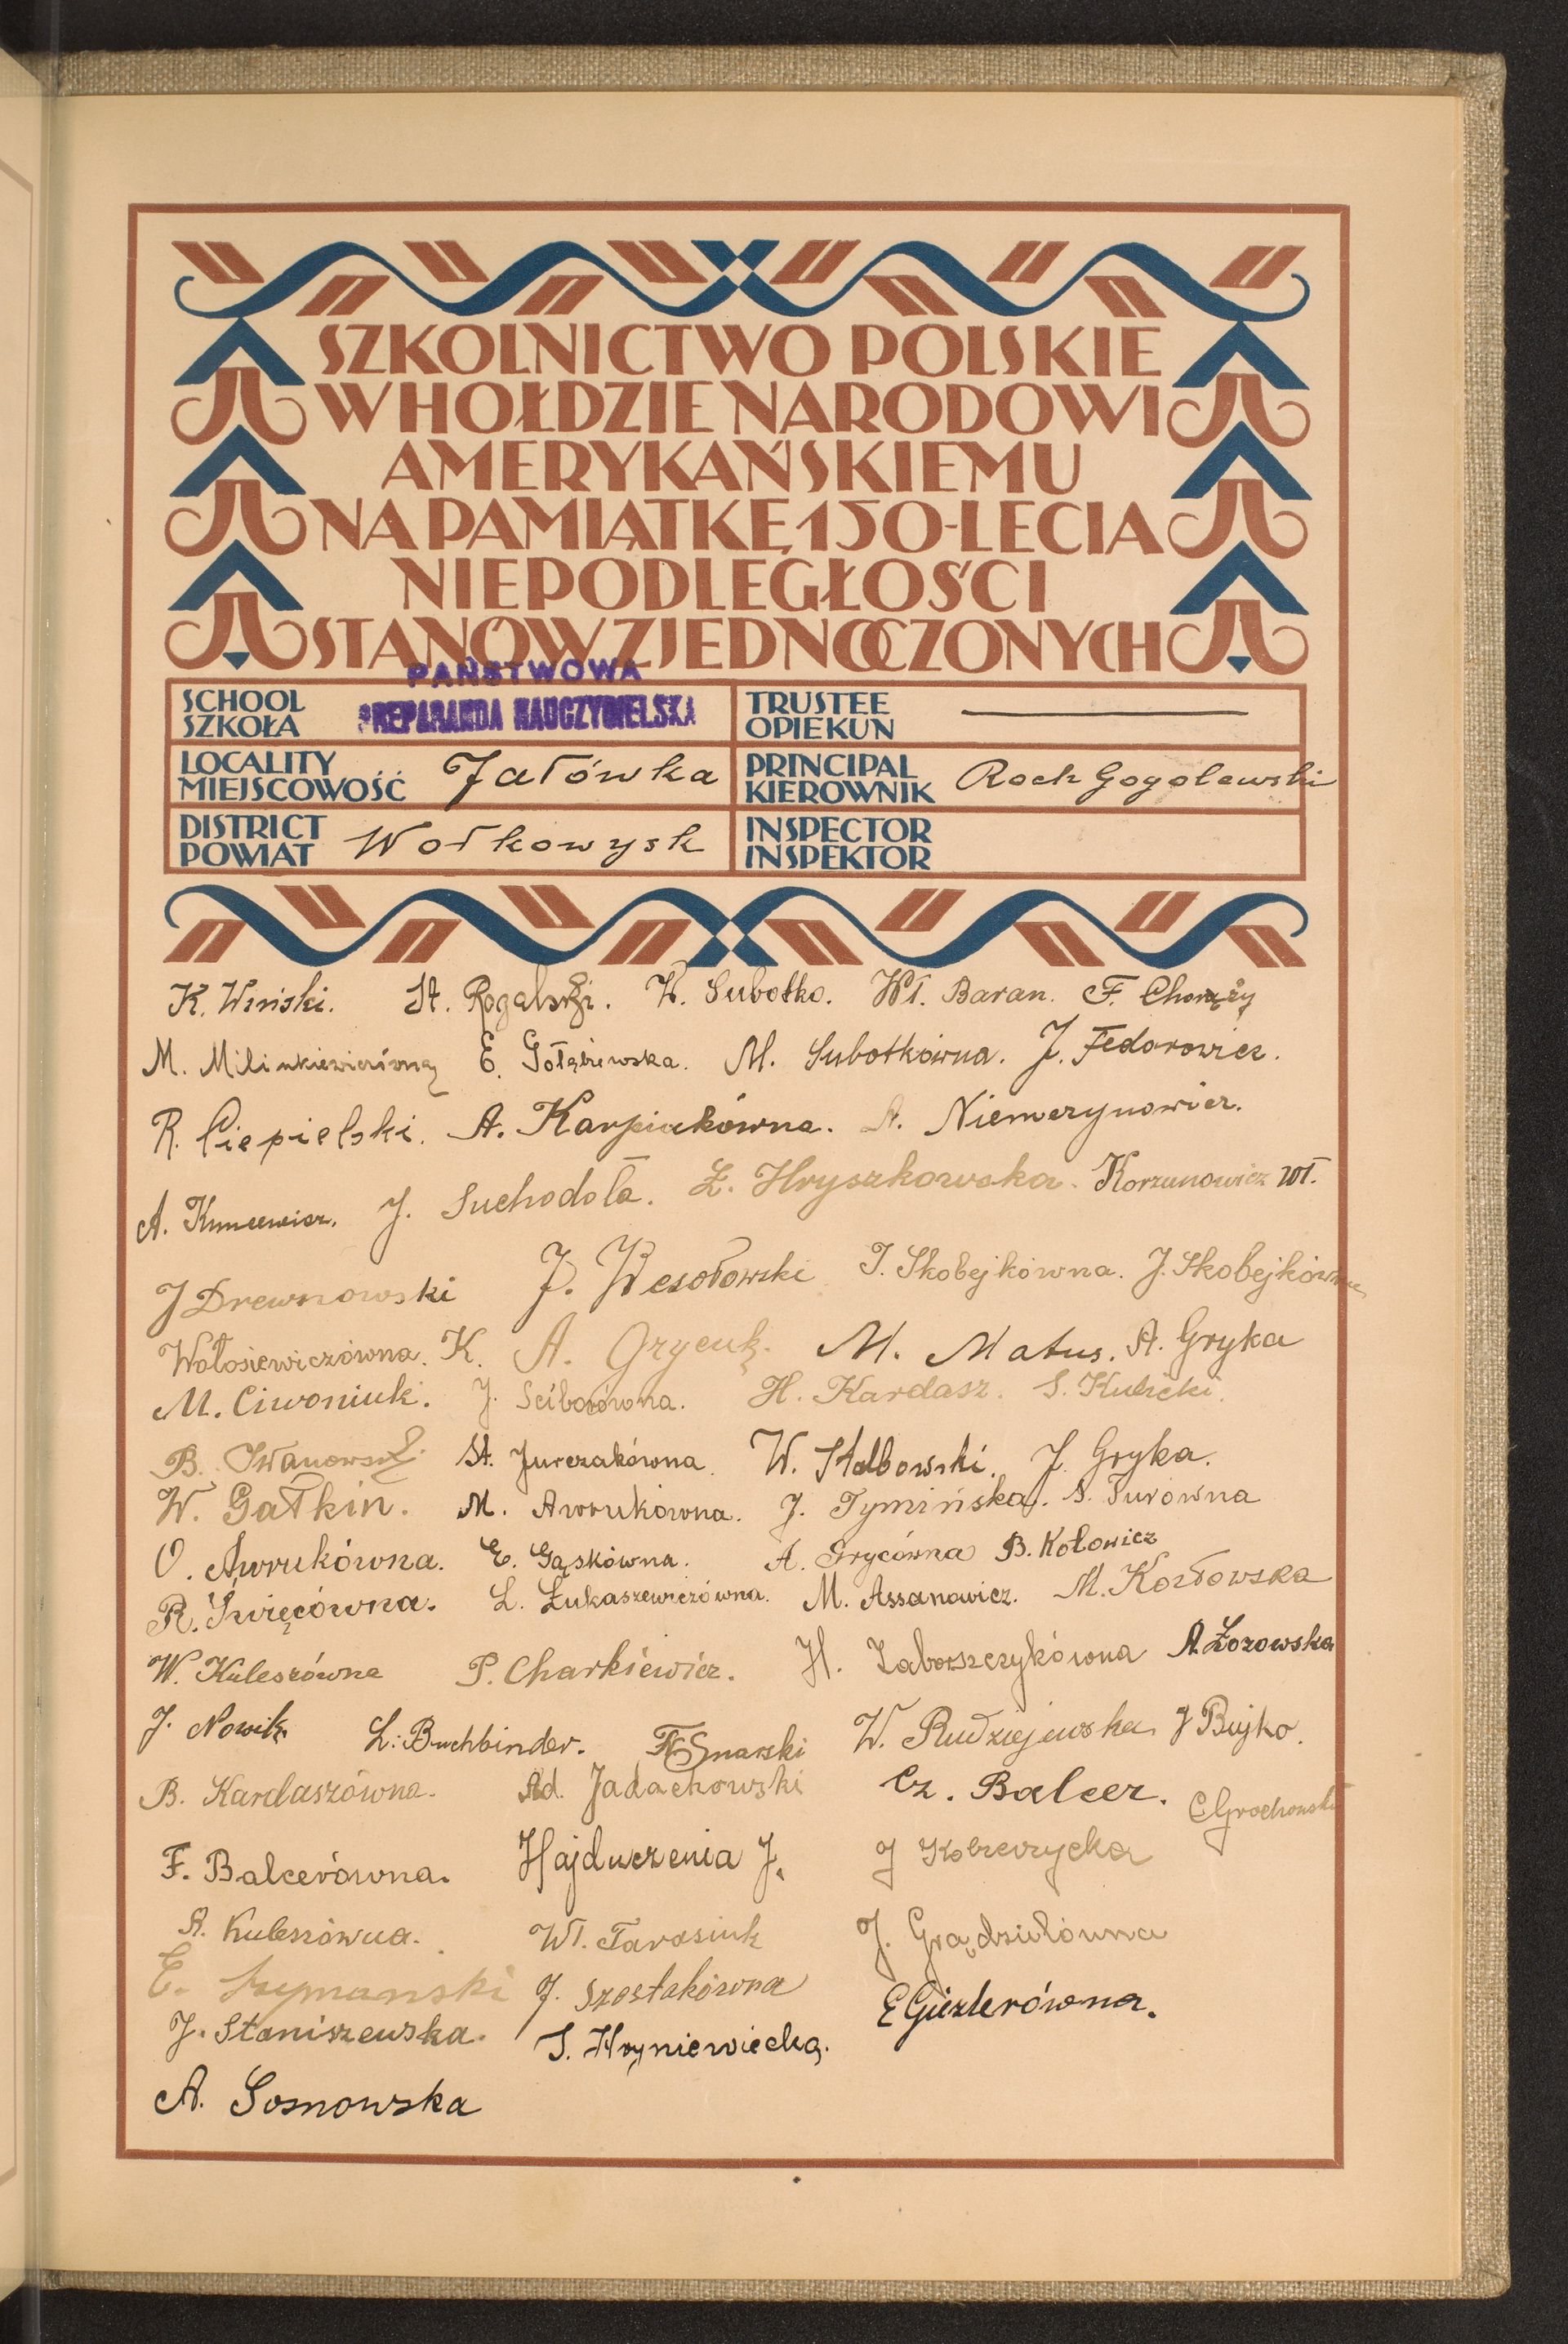 SZKOLNICTWO POLSKIE
W HOŁDZIE NARODOWI
AMERYKAŃSKIEMU
NA PAMIĄTKĘ 150-LECIA
NIEPODLEGŁOŚCI
STANÓW ZJEDNOCZONYCH
PAŃSTWOWA
PREPARANDA NAUCZYCIELSKA
SCHOOL
SZKOŁA
TRUSTEE
OPIEKUN
LOCALITY
MIEJSCOWOŚĆ
Jałówka
PRINCIPAL
KIEROWNIK
Roch Gogolewski
DISTRICT
POWIAT
Wołkowysk
INSPECTOR
INSPEKTOR
K. Wiński. St. Rogalski. W. Subotko. Wł. Baran. F. Chorąży
M. Milinkiewiczówna E. Gołębiewska. M. Subotkówna. J. Fedorowicz.
R. Ciepielski. A. Karpiukówna. A. Niemczynowicz.
A. Kuncewicz. J. Suchodoła. Z. Hryszkowska. Korzunowicz Wł.
J Drewnowski J. Wesołowski J. Skobejkówna. J. Skobejkówna
Wołosiewiczówna. K. A. Grycuk. M. Matus. A. Gryka
M. Ciwoniuk. J. Ściborówna. H. Kardasz. S. Kulicki.
B. Iwanowski. St. Jurczakówna. W. Stałbowski. J. Gryka.
W. Gałkin. M. Awrukówna. J. Tymińska. A. Turówna
O. Awrukówna. E. Gąskówna. A. Grycówna B. Kołowicz
R. Święcówna. L. Łukaszewiczówna. M. Assanowicz. M. Kozłowska
W. Kuleszówna P. Charkiewicz. H. Zaborszczykówna A. Łozowska
J. Nowik. L. Buchbinder. F. Snarski W. Rudziejewska J Bujko.
B. Kardaszówna. Ad. Jadachowski Cz. Balcer. C Grochowski
F. Balcerówna. Hajduczenia J. J Kobzevrycka
A. Kuleszówna. Wł. Tarasiuk J. Grądziułówna
E. Szymanski J. Szostakówna E Giezlerówna.
J. Staniszewska. S. Hryniewiecka.
A. Sosnowska